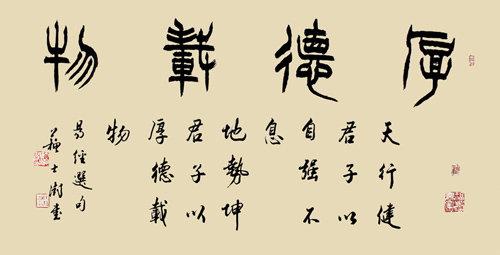 厚德載物
天行健
君子以
自強不
息
地勢坤
君子以
厚德載
物
易經選句
蘇士澍書